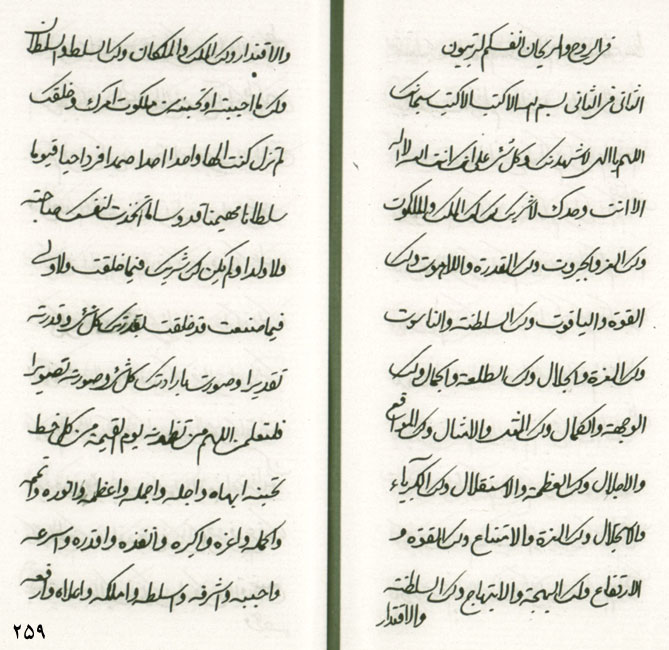 فى الروح والريحان انفسكم لتربيون
الثانى فى الثانى بسم الله الاكتب الاكتب سبحانك
اللهم يا الهى لاشهدنك وكل شىء على انك انت الله لا اله
الا انت وحدك لا شريك لك لك الملك والملكوت
ولك العز والجبروت ولك القدرة واللاهوت ولك
القوة والياقوت ولك السلطنة والناسوت
ولك العزة والجلال ولك الطلعة والجمال ولك
الوجهة والكمال ولك المثل والامثال ولك المواقع
والاجلال ولك العظمة والاستقلال ولك الكبرياء
والاجلال ولك العزة والامتناع ولك القوة و
الارتفاع ولك البهجة والابتهاج ولك السلطنة
والاقتدار
والاقتدار ولك الملك والملكان ولك السلط والسلطان
ولك ما احببته او تحبنه من ملكوت امرك وخلقك
لم تزل كنت الها واحدا احدا صمدا فردا حيا قيوما
سلطانا مهيمنا قدوسا لما اتخذت لنفسك صاحبة
ولا ولدا ولم يكن لك شريك فيما خلقت ولا ولى
فيما صنعت قد خلقت بقدرتك كل شىء وقدرته
تقديرا وصورت بارادتك كل شىء وصورته تصويرا
فلتعلمن اللهم من تظهرنه يوم القيمة من كل خط
تحبنه ابهاه واجله واجمله واعظمه وانوره واتممه
واكمله واعزه واكبره وانفذه واقدره واسرعه
واحببه واشرفه واسلطه واملكه واعلاه وارفعه
٢٥٩